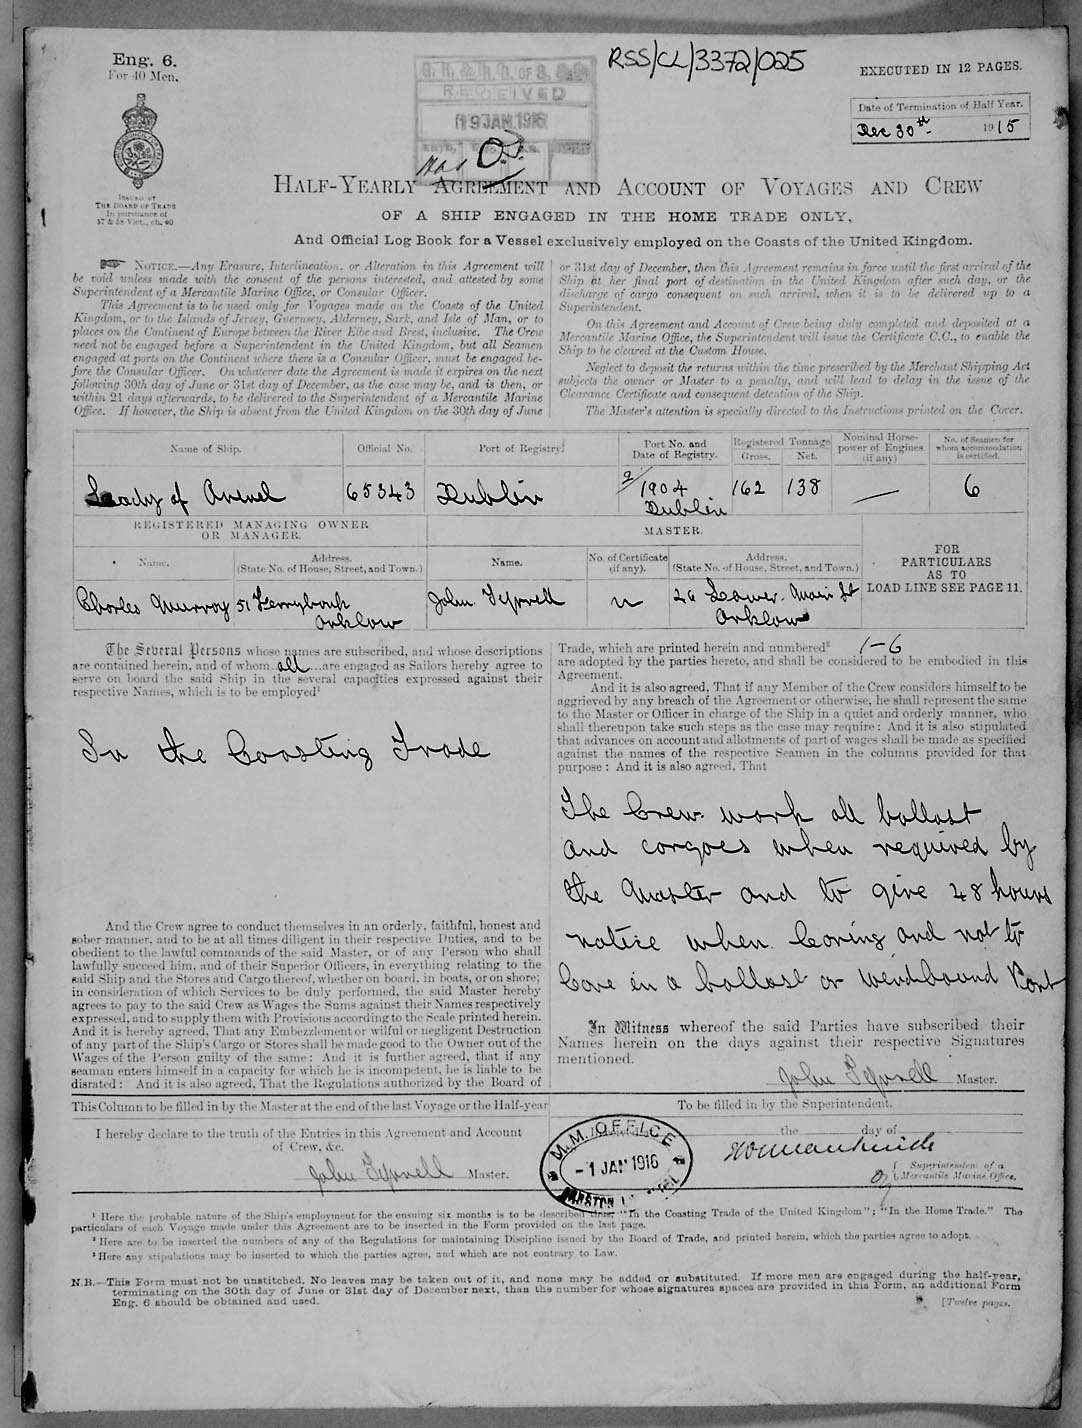 Eng. 6.
For 40 Men.
RSS/CL/3372/025
EXECUTED IN 12 PAGES.
RECEIVED
19 JAN. 1916
Date of Termination of Half Year.
Dec 30th 1915
ISSUED BY
THE BOARD OF TRADE
In pursuance of
57 & 58 Vict., ch. 60
HALF-YEARLY AGREEMENT AND ACCOUNT OF VOYAGES AND CREW
OF A SHIP ENGAGED IN THE HOME TRADE ONLY,
And Official Log Book for a Vessel exclusively employed on the Coasts of the United Kingdom.
NOTICE.—Any Erasure, Interlineation, or Alteration in this Agreement will
be void unless made with the consent of the persons interested, and attested by some
Superintendent of a Mercantile Marine Office, or Consular Officer.
This Agreement is to be used only for Voyages made on the Coasts of the United
Kingdom, or to the Islands of Jersey, Guernsey, Alderney, Sark, and Isle of Man, or to
places on the Continent of Europe between the River Elbe and Brest, inclusive. The Crew
need not be engaged before a Superintendent in the United Kingdom, but all Seamen
engaged at ports on the Continent where there is a Consular Officer, must be engaged be-
fore the Consular Officer. On whatever date the Agreement is made it expires on the next
following 30th day of June or 31st day of December, as the case may be, and is then, or
within 21 days afterwards, to be delivered to the Superintendent of a Mercantile Marine
Office. If however, the Ship is absent from the United Kingdom on the 30th day of June
or 31st day of December, then this Agreement remains in force until the first arrival of the
Ship at her final port of destination in the United Kingdom after such day, or the
discharge of cargo consequent on such arrival, when it is to be delivered up to a
Superintendent.
On this Agreement and Account of Crew being duly completed and deposited at a
Mercantile Marine Office, the Superintendent will issue the Certificate C.C., to enable the
Ship to be cleared at the Custom House.
Neglect to deposit the returns within the time prescribed by the Merchant Shipping Act
subjects the owner or Master to a penalty, and will lead to delay in the issue of the
Clearance Certificate and consequent detention of the Ship.
The Master's attention is specially directed to the Instructions printed on the Cover.
Name of Ship.
Official No.
Port of Registry.
Port No. and
Date of Registry.
Registered Tonnage
Gross. Net.
Nominal Horse-
power of Engines
(if any)
No. of Seamen for
whom accommodation
is certified.
Lady of Avenel
65343
Dublin
2/1904
Dublin
162
138
—
6
REGISTERED MANAGING OWNER
OR MANAGER.
MASTER.
FOR
PARTICULARS
AS TO
LOAD LINE SEE PAGE 11.
Name.
Address.
(State No. of House, Street, and Town.)
Name.
No. of Certificate
(if any).
Address.
(State No. of House, Street, and Town.)
Charles Murray
51 Ferrybank
Arklow
John Tyrrell
26 Lower Main St
Arklow
The Several Persons whose names are subscribed, and whose descriptions
are contained herein, and of whom all are engaged as Sailors hereby agree to
serve on board the said Ship in the several capacities expressed against their
respective Names, which is to be employed¹
In the Coasting Trade
And the Crew agree to conduct themselves in an orderly, faithful, honest and
sober manner, and to be at all times diligent in their respective Duties, and to be
obedient to the lawful commands of the said Master, or of any Person who shall
lawfully succeed him, and of their Superior Officers, in everything relating to the
said Ship and the Stores and Cargo thereof, whether on board, in boats, or on shore;
in consideration of which Services to be duly performed, the said Master hereby
agrees to pay to the said Crew as Wages the Sums against their Names respectively
expressed, and to supply them with Provisions according to the Scale printed herein.
And it is hereby agreed, That any Embezzlement or wilful or negligent Destruction
of any part of the Ship's Cargo or Stores shall be made good to the Owner out of the
Wages of the Person guilty of the same: And it is further agreed, that if any
seaman enters himself in a capacity for which he is incompetent, he is liable to be
disrated: And it is also agreed, That the Regulations authorized by the Board of
Trade, which are printed herein and numbered² 1-6
are adopted by the parties hereto, and shall be considered to be embodied in this
Agreement.
And it is also agreed, That if any Member of the Crew considers himself to be
aggrieved by any breach of the Agreement or otherwise, he shall represent the same
to the Master or Officer in charge of the Ship in a quiet and orderly manner, who
shall thereupon take such steps as the case may require: And it is also stipulated
that advances on account and allotments of part of wages shall be made as specified
against the names of the respective Seamen in the columns provided for that
purpose: And it is also agreed, That
The Crew work all ballast
and cargoes when required by
the Master and to give 48 hours
notice when leaving and not to
leave in a ballast or windbound Port
In Witness whereof the said Parties have subscribed their
Names herein on the days against their respective Signatures
mentioned.
John Tyrrell Master.
This Column to be filled in by the Master at the end of the last Voyage or the Half-year
To be filled in by the Superintendent.
I hereby declare to the truth of the Entries in this Agreement and Account
of Crew, &c.
John Tyrrell Master.
M.M. OFFICE
-1 JAN 1916
the day of
Superintendent of a
Mercantile Marine Office.
¹ Here the probable nature of the Ship's employment for the ensuing six months is to be described thus: "In the Coasting Trade of the United Kingdom"; "In the Home Trade." The
particulars of each Voyage made under this Agreement are to be inserted in the Form provided on the last page.
² Here are to be inserted the numbers of any of the Regulations for maintaining Discipline issued by the Board of Trade, and printed herein, which the parties agree to adopt.
³ Here any stipulations may be inserted to which the parties agree, and which are not contrary to Law.
N.B.—This Form must not be unstitched. No leaves may be taken out of it, and none may be added or substituted. If more men are engaged during the half-year,
terminating on the 30th day of June or 31st day of December next, than the number for whose signatures spaces are provided in this Form, an additional Form
Eng. 6 should be obtained and used.
[Twelve pages.